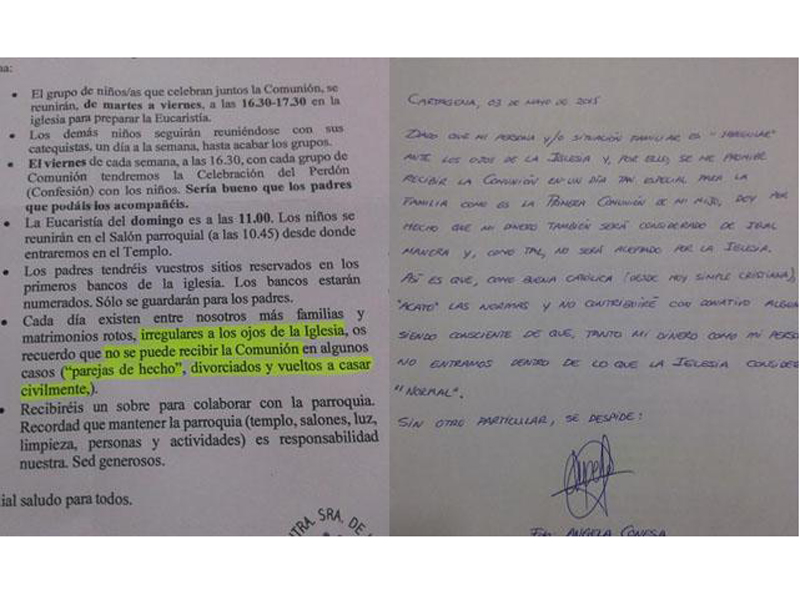 na:
• El grupo de niños/as que celebran juntos la Comunión, se
reunirán, de martes a viernes, a las 16.30-17.30 en la
iglesia para preparar la Eucaristía.
• Los demás niños seguirán reuniéndose con sus
catequistas, un día a la semana, hasta acabar los grupos.
• El viernes de cada semana, a las 16.30, con cada grupo de
Comunión tendremos la Celebración del Perdón
(Confesión) con los niños. Sería bueno que los padres
que podáis los acompañéis.
• La Eucaristía del domingo es a las 11.00. Los niños se
reunirán en el Salón parroquial (a las 10.45) desde donde
entraremos en el Templo.
• Los padres tendréis vuestros sitios reservados en los
primeros bancos de la iglesia. Los bancos estarán
numerados. Sólo se guardarán para los padres.
• Cada día existen entre nosotros más familias y
matrimonios rotos, irregulares a los ojos de la Iglesia, os
recuerdo que no se puede recibir la Comunión en algunos
casos ("parejas de hecho", divorciados y vueltos a casar
civilmente,).
• Recibiréis un sobre para colaborar con la parroquia.
Recordad que mantener la parroquia (templo, salones, luz,
limpieza, personas y actividades) es responsabilidad
nuestra. Sed generosos.
ial saludo para todos.
NTRA. SRA. DE
CARTAGENA, 03 DE MAYO DE 2015
DADO QUE MI PERSONA Y/O SITUACIÓN FAMILIAR ES "IRREGULAR"
ANTE LOS OJOS DE LA IGLESIA Y, POR ELLO, SE ME PROHIBE
RECIBIR LA COMUNIÓN EN UN DÍA TAN ESPECIAL PARA LA
FAMILIA COMO ES LA PRIMERA COMUNIÓN DE MI HIJO, DOY POR
HECHO QUE MI DINERO TAMBIÉN SERÁ CONSIDERADO DE IGUAL
MANERA Y, COMO TAL, NO SERÁ ACEPTADO POR LA IGLESIA.
ASÍ ES QUE, COMO BUENA CATÓLICA (DESDE HOY SIMPLE CRISTIANA),
"ACATO" LAS NORMAS Y NO CONTRIBUIRÉ CON DONATIVO ALGUN
SIENDO CONSCIENTE DE QUE, TANTO MI DINERO COMO MI PERSO
NO ENTRAMOS DENTRO DE LO QUE LA IGLESIA CONSIDER
"NORMAL".
SIN OTRO PARTICULAR, SE DESPIDE:
Fdo: ANGELA CONESA